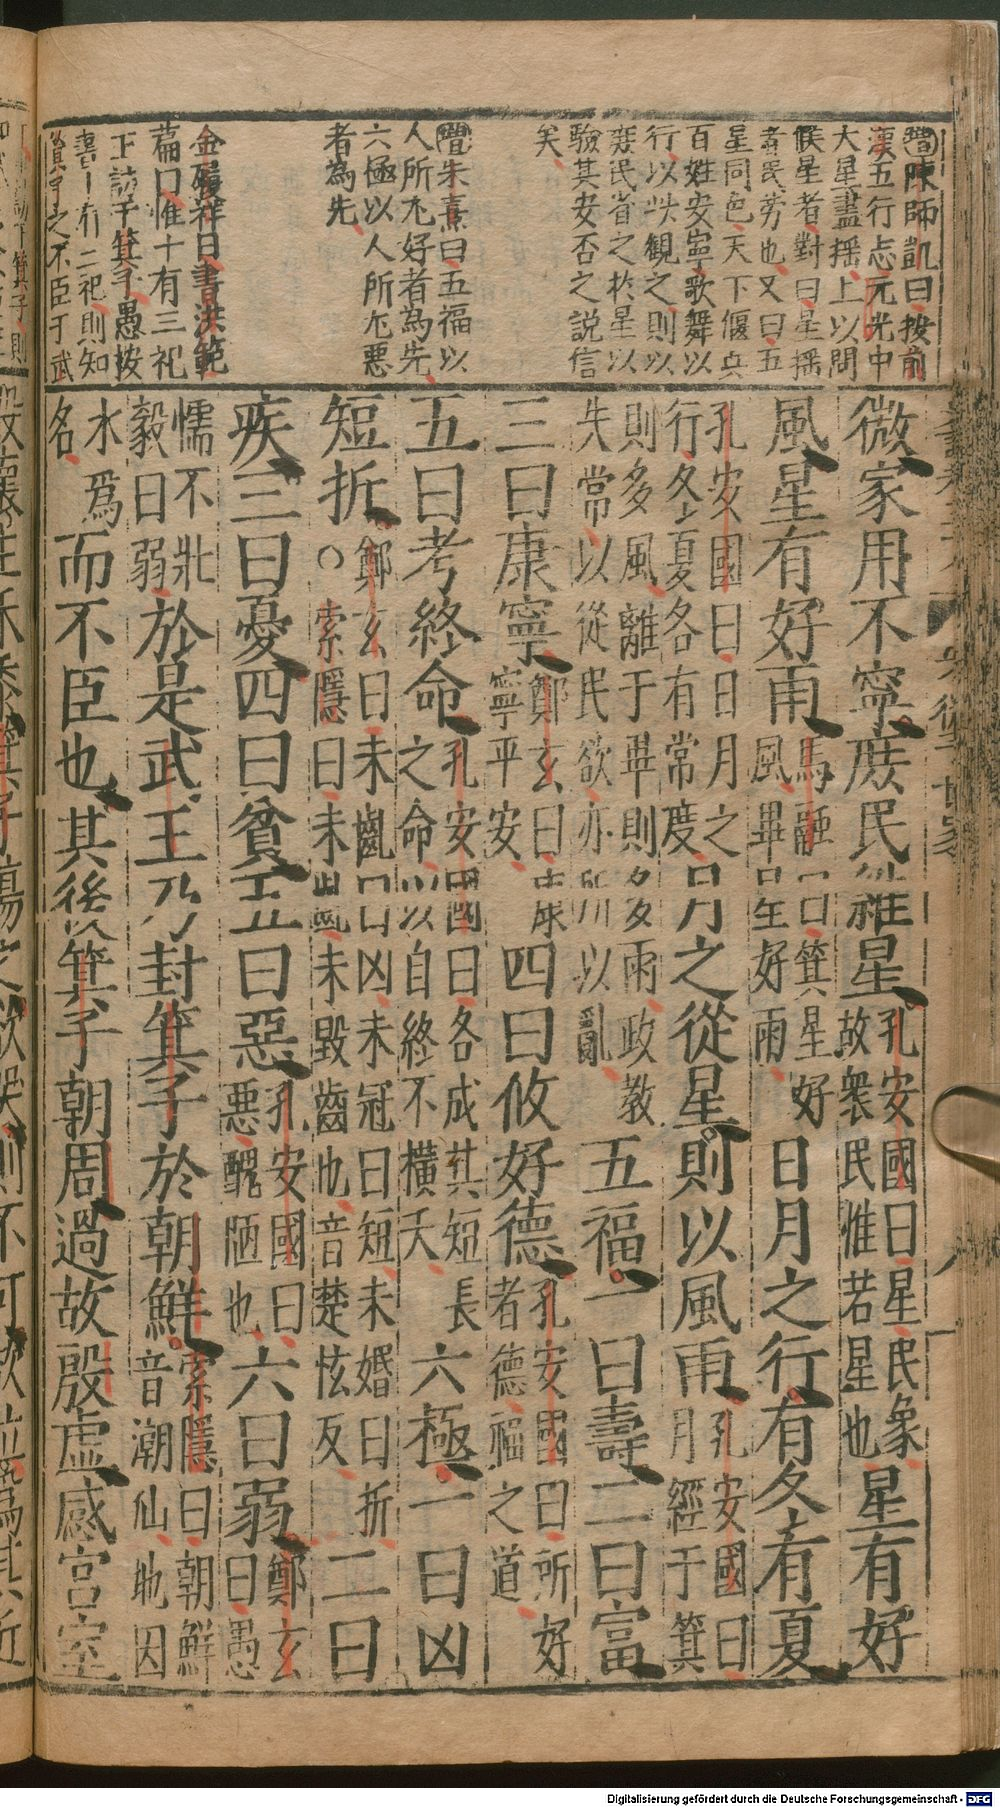 增陳師凱曰按前
漢五行志元光中
大星盡搖上以問
候星者對曰星搖
者民勞也又曰五
星同色天下偃兵
百姓安寧歌舞以
行以此觀之則以
庶民省之於星以
驗其安否之說信
矣
增朱熹曰五福以
人所尤好者為先
六極以人所尤惡
者為先
金履祥曰書洪範
篇曰惟十有三祀
王訪于箕子愚按
書十有三祀則知
箕子之不臣于武
微家用不寧庶民維星孔安國曰星民象
故衆民惟若星也星有好
風星有好雨馬融曰箕星好
風畢星好雨日月之行有冬有夏
孔安國曰日月之
行冬夏各有常度日月之從星則以風雨孔安國曰
月經于箕
則多風離于畢則多雨政教
失常以從民欲亦所以亂五福一曰壽二曰富
三曰康寧鄭玄曰康
寧平安四曰攸好德孔安國曰所好
者德福之道
五曰考終命孔安國曰各成其短長
之命以自終不橫夭六極一曰凶
短折鄭玄曰未齔曰凶未冠曰短未婚曰折
○索隱曰未齔未毀齒也音楚恡反二曰
疾三曰憂四曰貧五曰惡孔安國曰
惡醜陋也六曰弱鄭玄
曰愚
懦不壯
毅曰弱於是武王乃封箕子於朝鮮索隱曰朝鮮
音潮仙地因
水爲
名而不臣也其後箕子朝周過故殷虛感宮室
Digitalisierung gefördert durch die Deutsche Forschungsgemeinschaft - DFG